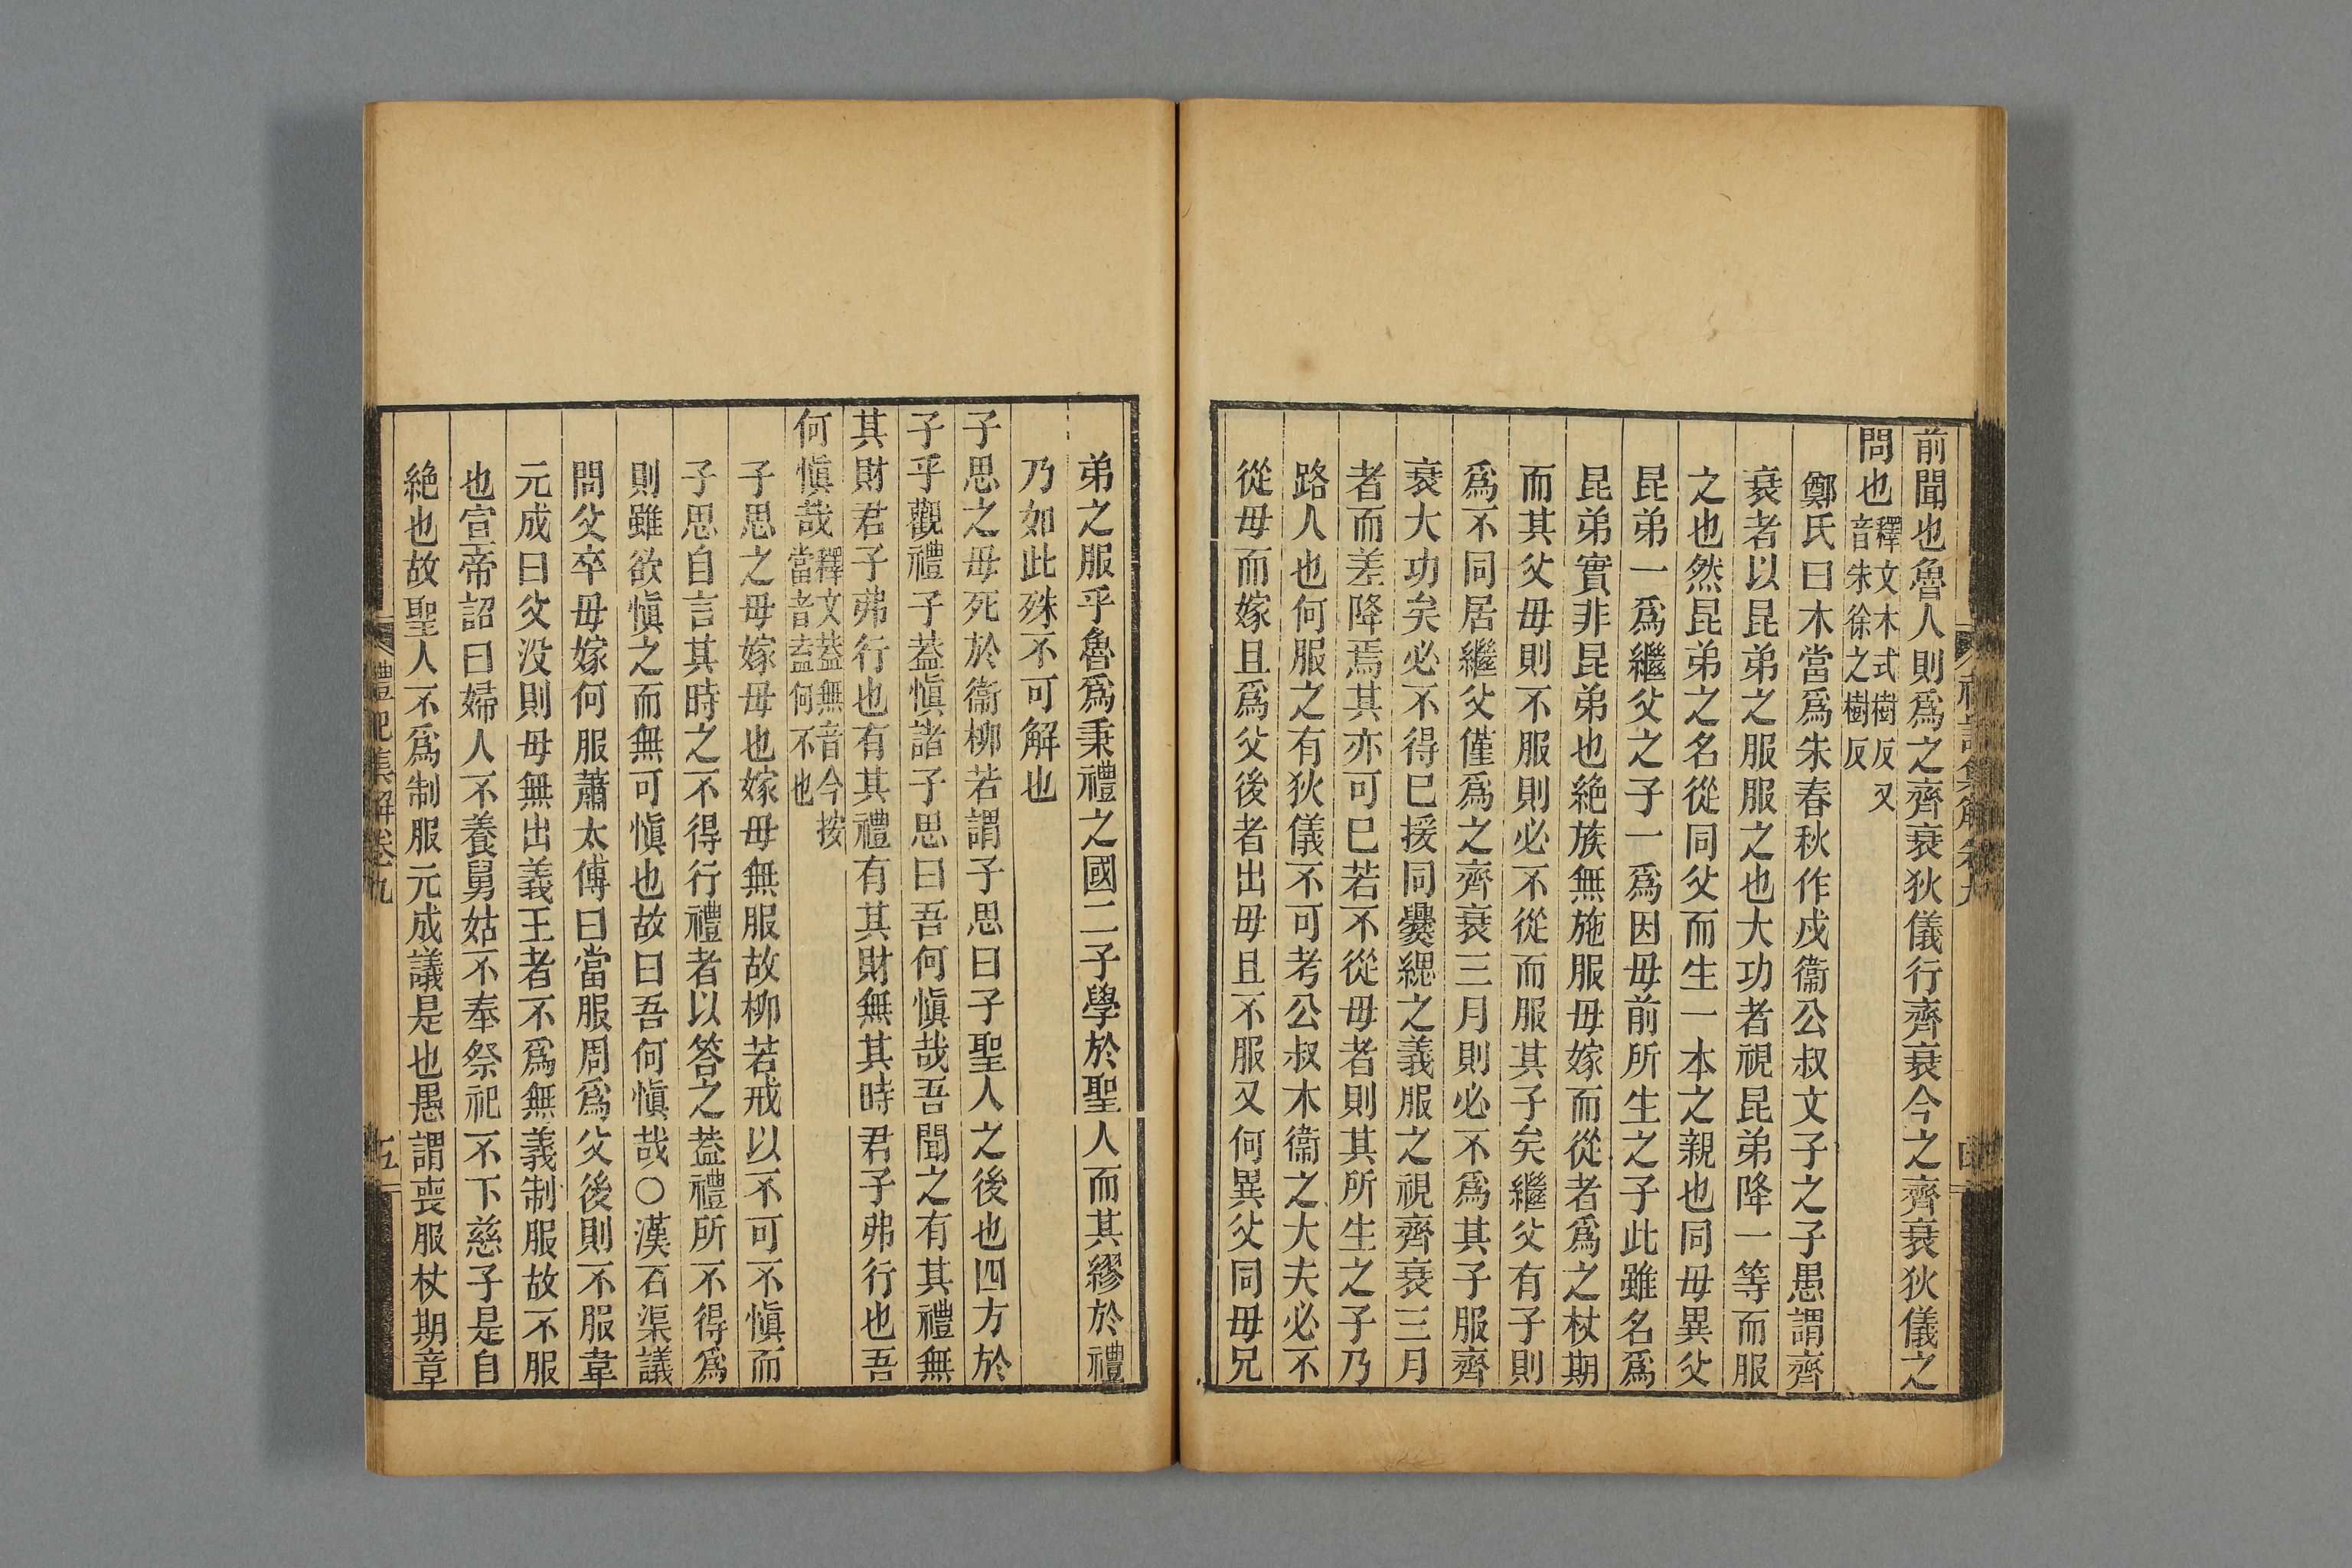 前聞也魯人則爲之齊衰狄儀行齊衰今之齊衰狄儀之
問也釋文木式樹反又音朱徐之樹反
鄭氏曰木當爲朱春秋作戍衞公叔文子之子愚謂齊
衰者以昆弟之服服之也大功者視昆弟降一等而服
之也然昆弟之名從同父而生一本之親也同毋異父
昆弟一爲繼父之子一爲因毋前所生之子此雖名爲
昆弟實非昆弟也絶族無施服毋嫁而從者爲之杖期
而其父毋則不服則必不從而服其子矣繼父有子則
爲不同居繼父僅爲之齊衰三月則必不爲其子服齊
衰大功矣必不得巳援同爨緦之義服之視齊衰三月
者而差降焉其亦可巳若不從毋者則其所生之子乃
路人也何服之有狄儀不可考公叔木衞之大夫必不
從毋而嫁且爲父後者出毋且不服又何異父同毋兄
弟之服乎魯爲秉禮之國二子學於聖人而其繆於禮
乃如此殊不可解也
子思之毋死於衞柳若謂子思曰子聖人之後也四方於
子乎觀禮子葢愼諸子思曰吾何愼哉吾聞之有其禮無
其財君子弗行也有其禮有其財無其時君子弗行也吾
何愼哉釋文葢無音今按當音盍何不也
子思之毋嫁毋也嫁毋無服故柳若戒以不可不愼而
子思自言其時之不得行禮者以答之葢禮所不得爲
則雖欲愼之而無可愼也故曰吾何愼哉○漢石渠議
問父卒毋嫁何服蕭太傅曰當服周爲父後則不服韋
元成曰父没則毋無出義王者不爲無義制服故不服
也宣帝詔曰婦人不養舅姑不奉祭祀不下慈子是自
絶也故聖人不爲制服元成議是也愚謂喪服杖期章
禮記集解卷九
五